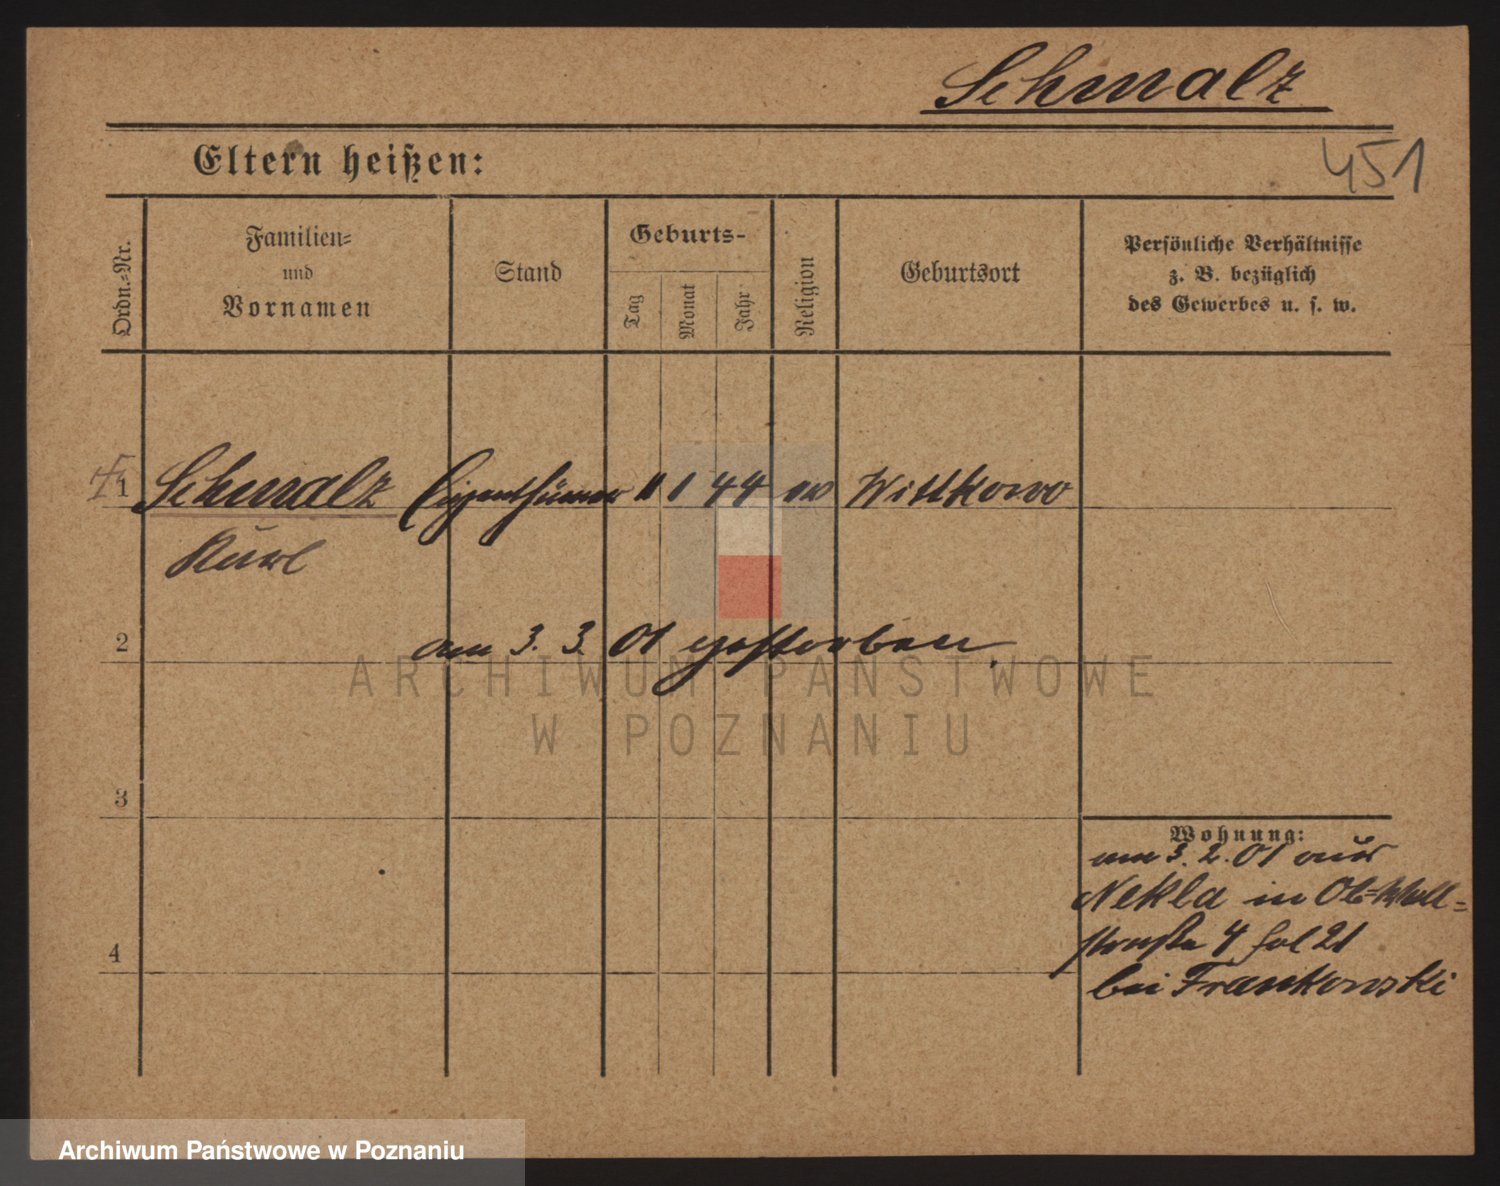 Schmalz
451
Eltern heißen:
Ordn.=Nr.
Familien=
und
Vornamen
Stand
Geburts-
Tag
Monat
Jahr
Religion
Geburtsort
Persönliche Verhältnisse
z. B. bezüglich
des Gewerbes u. s. w.
1 Schmalz Eigenthümer 11 1 44 ev Wittkowo
Karl
2 am 3. 3. 01 gestorben.
ARCHIWUM PAŃSTWOWE
W POZNANIU
3
Wohnung:
am 3. 2. 01 aus
Nekla in Ob=Wall=
straße 4 fol 21
4
bei Frankowski
Archiwum Państwowe w Poznaniu